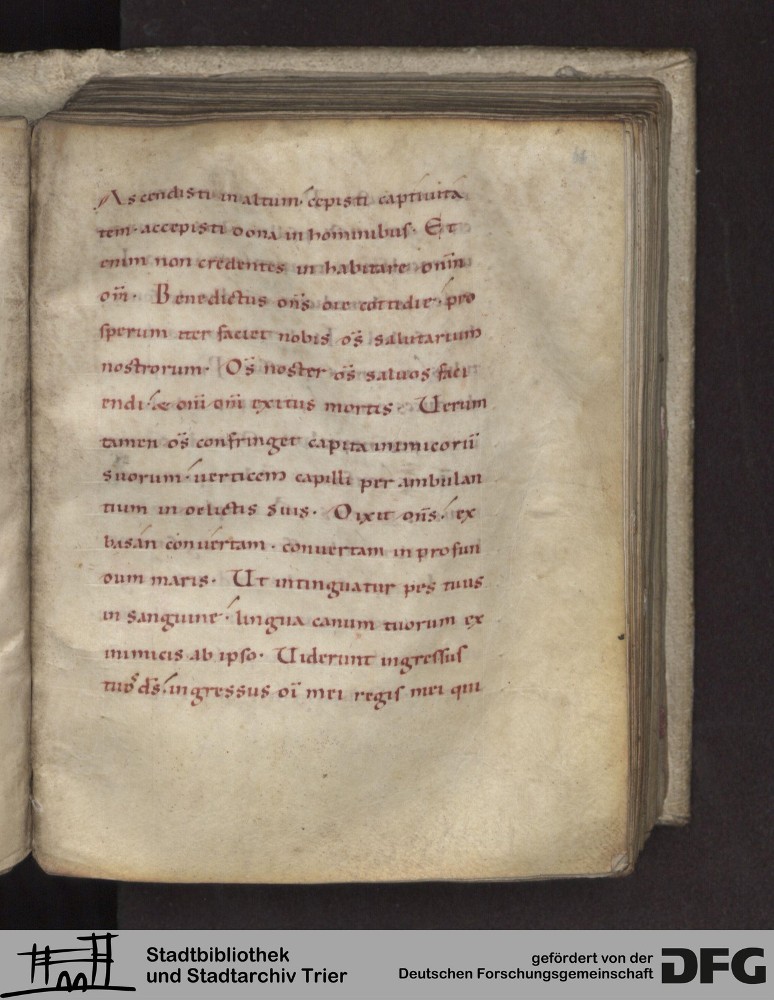 Ascendisti in altum· cepisti captiuita
tem· accepisti dona in hominibus· Et
enim non credentes inhabitare dnm̄
dm̄· Benedictus dn̄s die cottidie· pro
sperum iter faciet nobis ds̄ salutarium
nostrorum· Ds̄ noster ds̄ saluos faci
endi· & dni dni exitus mortis· Uerum
tamen ds̄ confringet capita inimicorū
suorum· uerticem capilli per ambulan
tium in delictis suis· Dixit dn̄s· ex
basan conuertam· conuertam in profun
dum maris· Ut intinguatur pes tuus
in sanguine· lingua canum tuorum ex
inimicis ab ipso· Uiderunt ingressus
tuos ds̄· ingressus dī mei regis mei qui
Stadtbibliothek
und Stadtarchiv Trier
gefördert von der
Deutschen Forschungsgemeinschaft
DFG